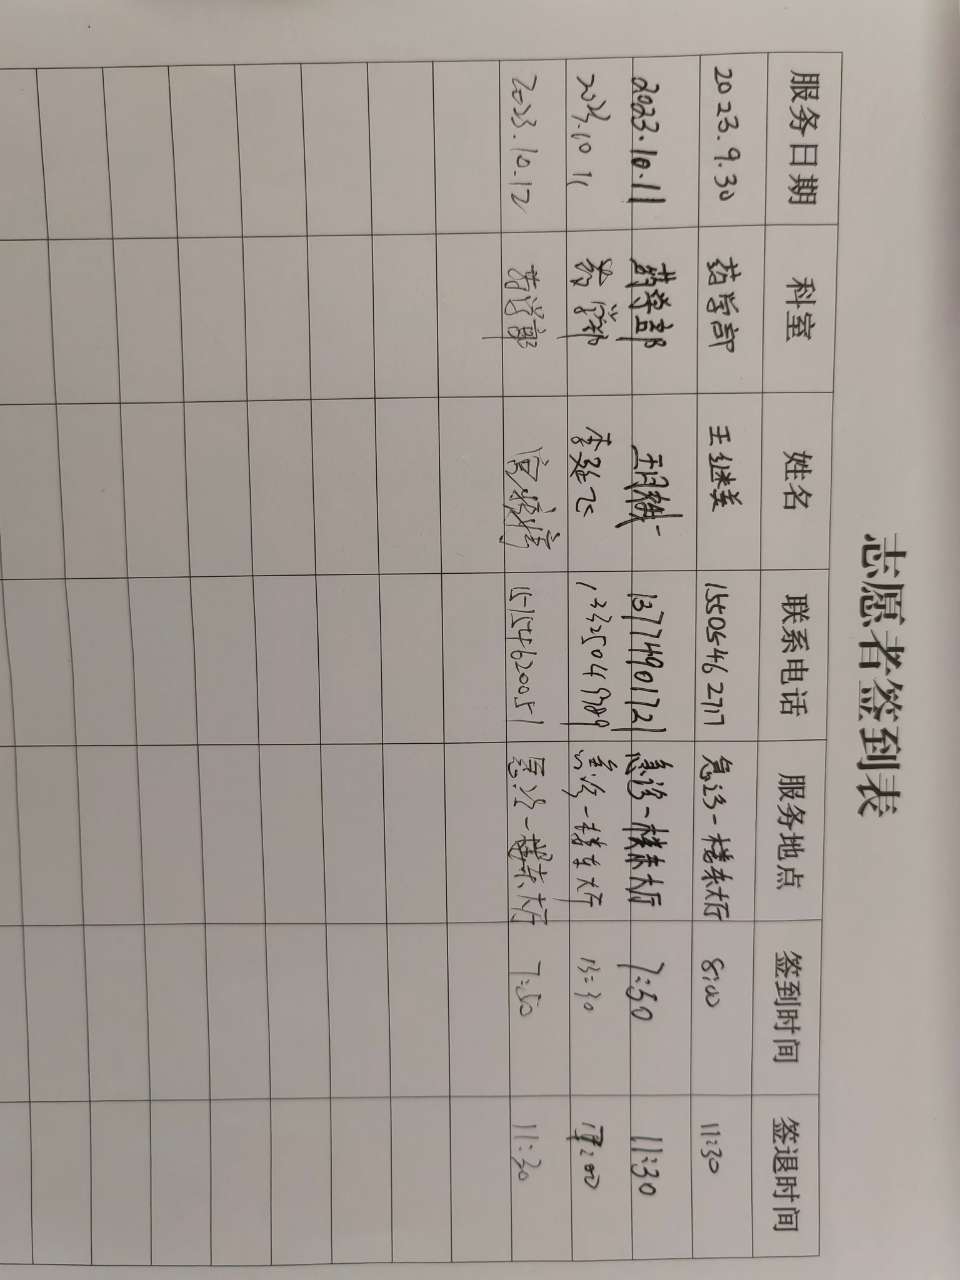 志愿者签到表
服务日期 科室 姓名 联系电话 服务地点 签到时间 签退时间
2023.9.30 药学部 王继美 15505462717 急诊一楼东大厅 8:00 11:30
2023.10.11 药学部 13774901721 急诊一楼东大厅 7:50 11:30
2023.10.11 药学部 李延飞 急诊一楼东大厅 13:30
2023.10.12 药学部 15754620051 急诊一楼东大厅 7:50 11:30